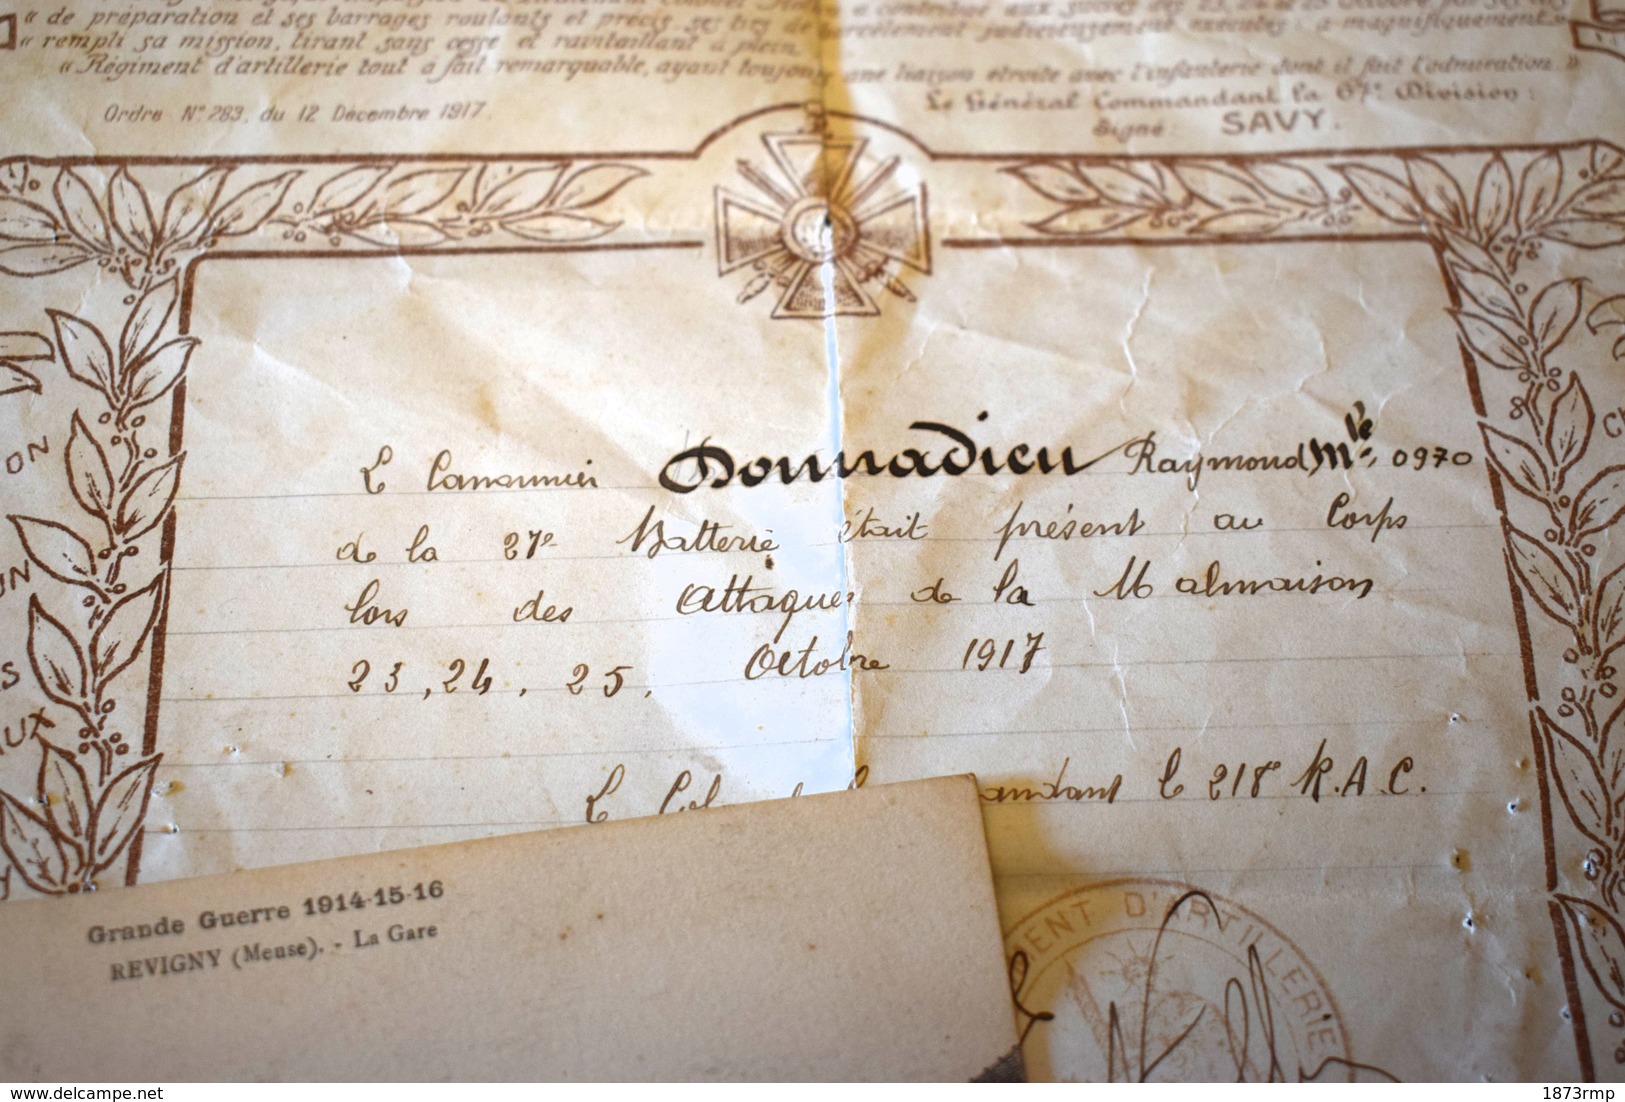 « de préparation et ses barrages roulants et précis ses tirs de harcèlement judicieusement exécutés : a magnifiquement »
« rempli sa mission, tirant sans cesse et ravitaillant à plein.
« Régiment d'artillerie tout à fait remarquable, ayant toujours une liaison étroite avec l'infanterie dont il fait l'admiration. »
Ordre N° 283, du 12 Décembre 1917.
Le Général Commandant la 67e Division :
Signé : SAVY.
L Canonnier Donnadieu Raymond Mle, 0970
de la 27e Batterie était présent au Corps
lors des Attaques de la Malmaison
23, 24, 25, Octobre 1917
andant le 218e R.A.C.
ENT D'ARTILLERIE
ON
UN
S
AUX
Grande Guerre 1914-15-16
REVIGNY (Meuse). - La Gare
delcampe.net
1873rmp